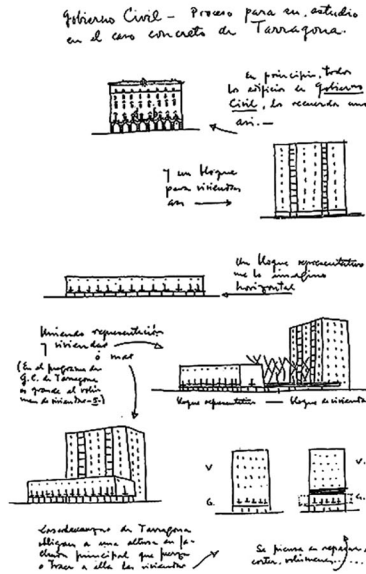 Gobierno Civil – Proceso para su estudio
en el caso concreto de Tarragona.
En principio, todos
los edificios de Gobierno
Civil, los recuerda uno
así.—
y un bloque
para viviendas
así
Un bloque representativo
me lo imagino
horizontal
Uniendo representación
y viviendas
ó mas
(En el programa del
G.C. de Tarragona
es grande el volú-
men de viviendas
bloque representativo — bloque de viviendas
V
G.
V.
G.
Las ordenanzas de Tarragona
obligan a una altura en fa-
chada principal que
a traer a ella las viviendas
Se piensa en separar,
cortar, volúmenes....